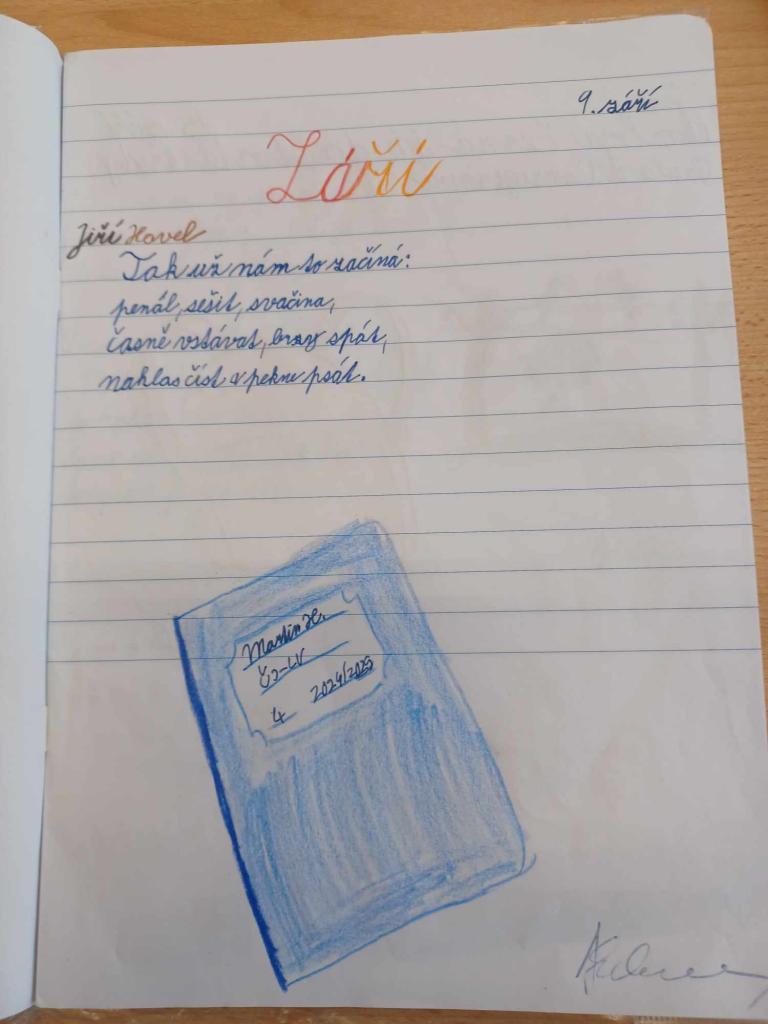 9. září
Září
Jiří Havel
Tak už nám to začíná:
penál, sešit, svačina,
časně vstávat, brzy spát,
nahlas číst a pekne psát.
Martin H.
ČJ-LV
4 2024/2025